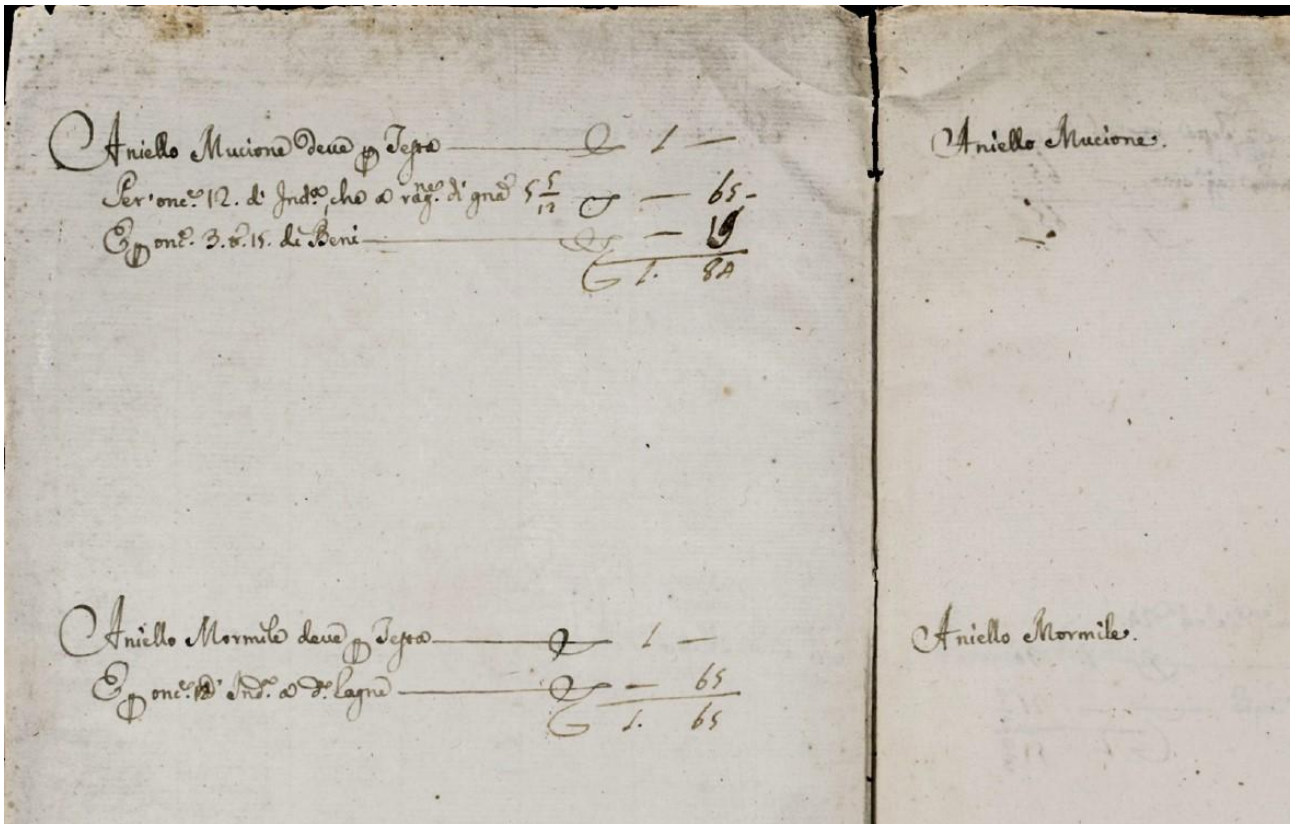 Aniello Mucione deve p Testa — 1 —
Per onc.e 12. d' Ind.a, che a rag.ne di gna 5 5/12 — 65 —
E p onc.e 3. 6. 15. di Beni — 19
1. 84
Aniello Mormile deve p Testa — 1 —
E p onc.e 12 d' Ind.a a d.a ragne — 65
1. 65
Aniello Mucione.
Aniello Mormile.